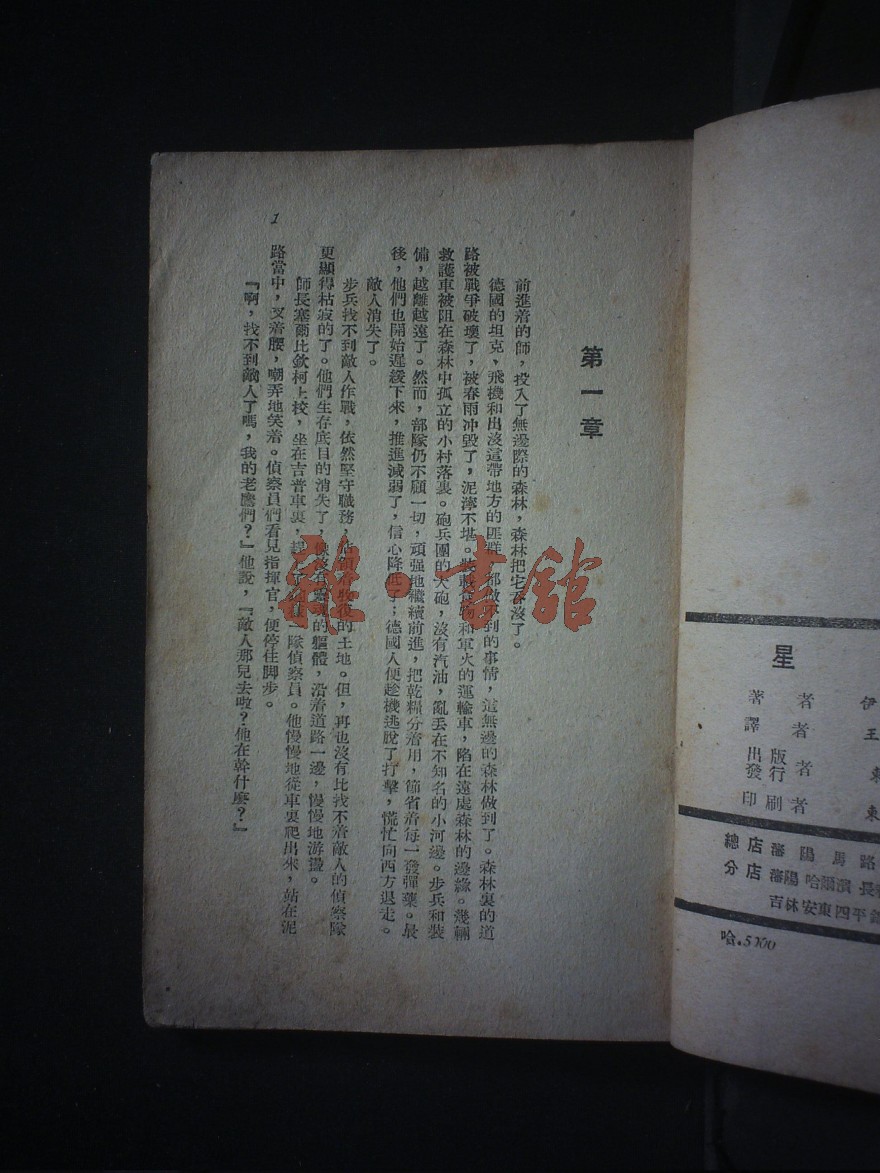 第一章
前進着的師，投入了無邊際的森林，森林把宅吞沒了。
德國的坦克，飛機和出沒這帶地方的匪群，都做不到的事情，這無邊的森林做到了。森林裏的道
路被戰爭破壞了，被春雨冲毀了，泥濘不堪。裝載食物和軍火的運輸車，陷在遠處森林的邊緣。幾輛
救護車被阻在森林中孤立的小村落裏。砲兵團的大砲，沒有汽油，亂丟在不知名的小河邊。步兵和裝
備，越離越遠了。然而，部隊仍不顧一切，頑强地繼續前進，把乾糧分着用，節省着每一發彈藥。最
後，他們也開始遲緩下來，推進減弱了，信心降低了；德國人便趁機逃脫了打擊，慌忙向西方退走。
敵人消失了。
步兵找不到敵人作戰，依然堅守職務，佔領着收復的土地。但，再也沒有比找不着敵人的偵察隊
更顯得枯寂的了。他們生存底目的消失了，像沒有靈魂的軀體，沿着道路一邊，慢慢地游盪。
師長塞爾比欽柯上校，坐在吉普車裏，趕了這一隊偵察員。他慢慢地從車裏爬出來，站在泥
路當中，叉着腰，嘲弄地笑着。偵察員們看見指揮官，便停住脚步。
『啊，找不到敵人了嗎，我的老鷹們？』他說，『敵人那兒去啦？他在幹什麼？』
1
雜·書館
星
著者 伊
譯者 王
出版
發行者 東
印刷者 東
總店 瀋陽馬路
分店 瀋陽 哈爾濱 長
吉林 安東 四平
哈.5700